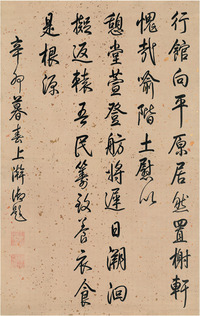 行館向平原居然置榭軒
愧我喻階土慰以
憩堂萱登舫將遲日溯洄
擬返轅吾民籌設養衣食
是根源
辛卯暮春上澣御題